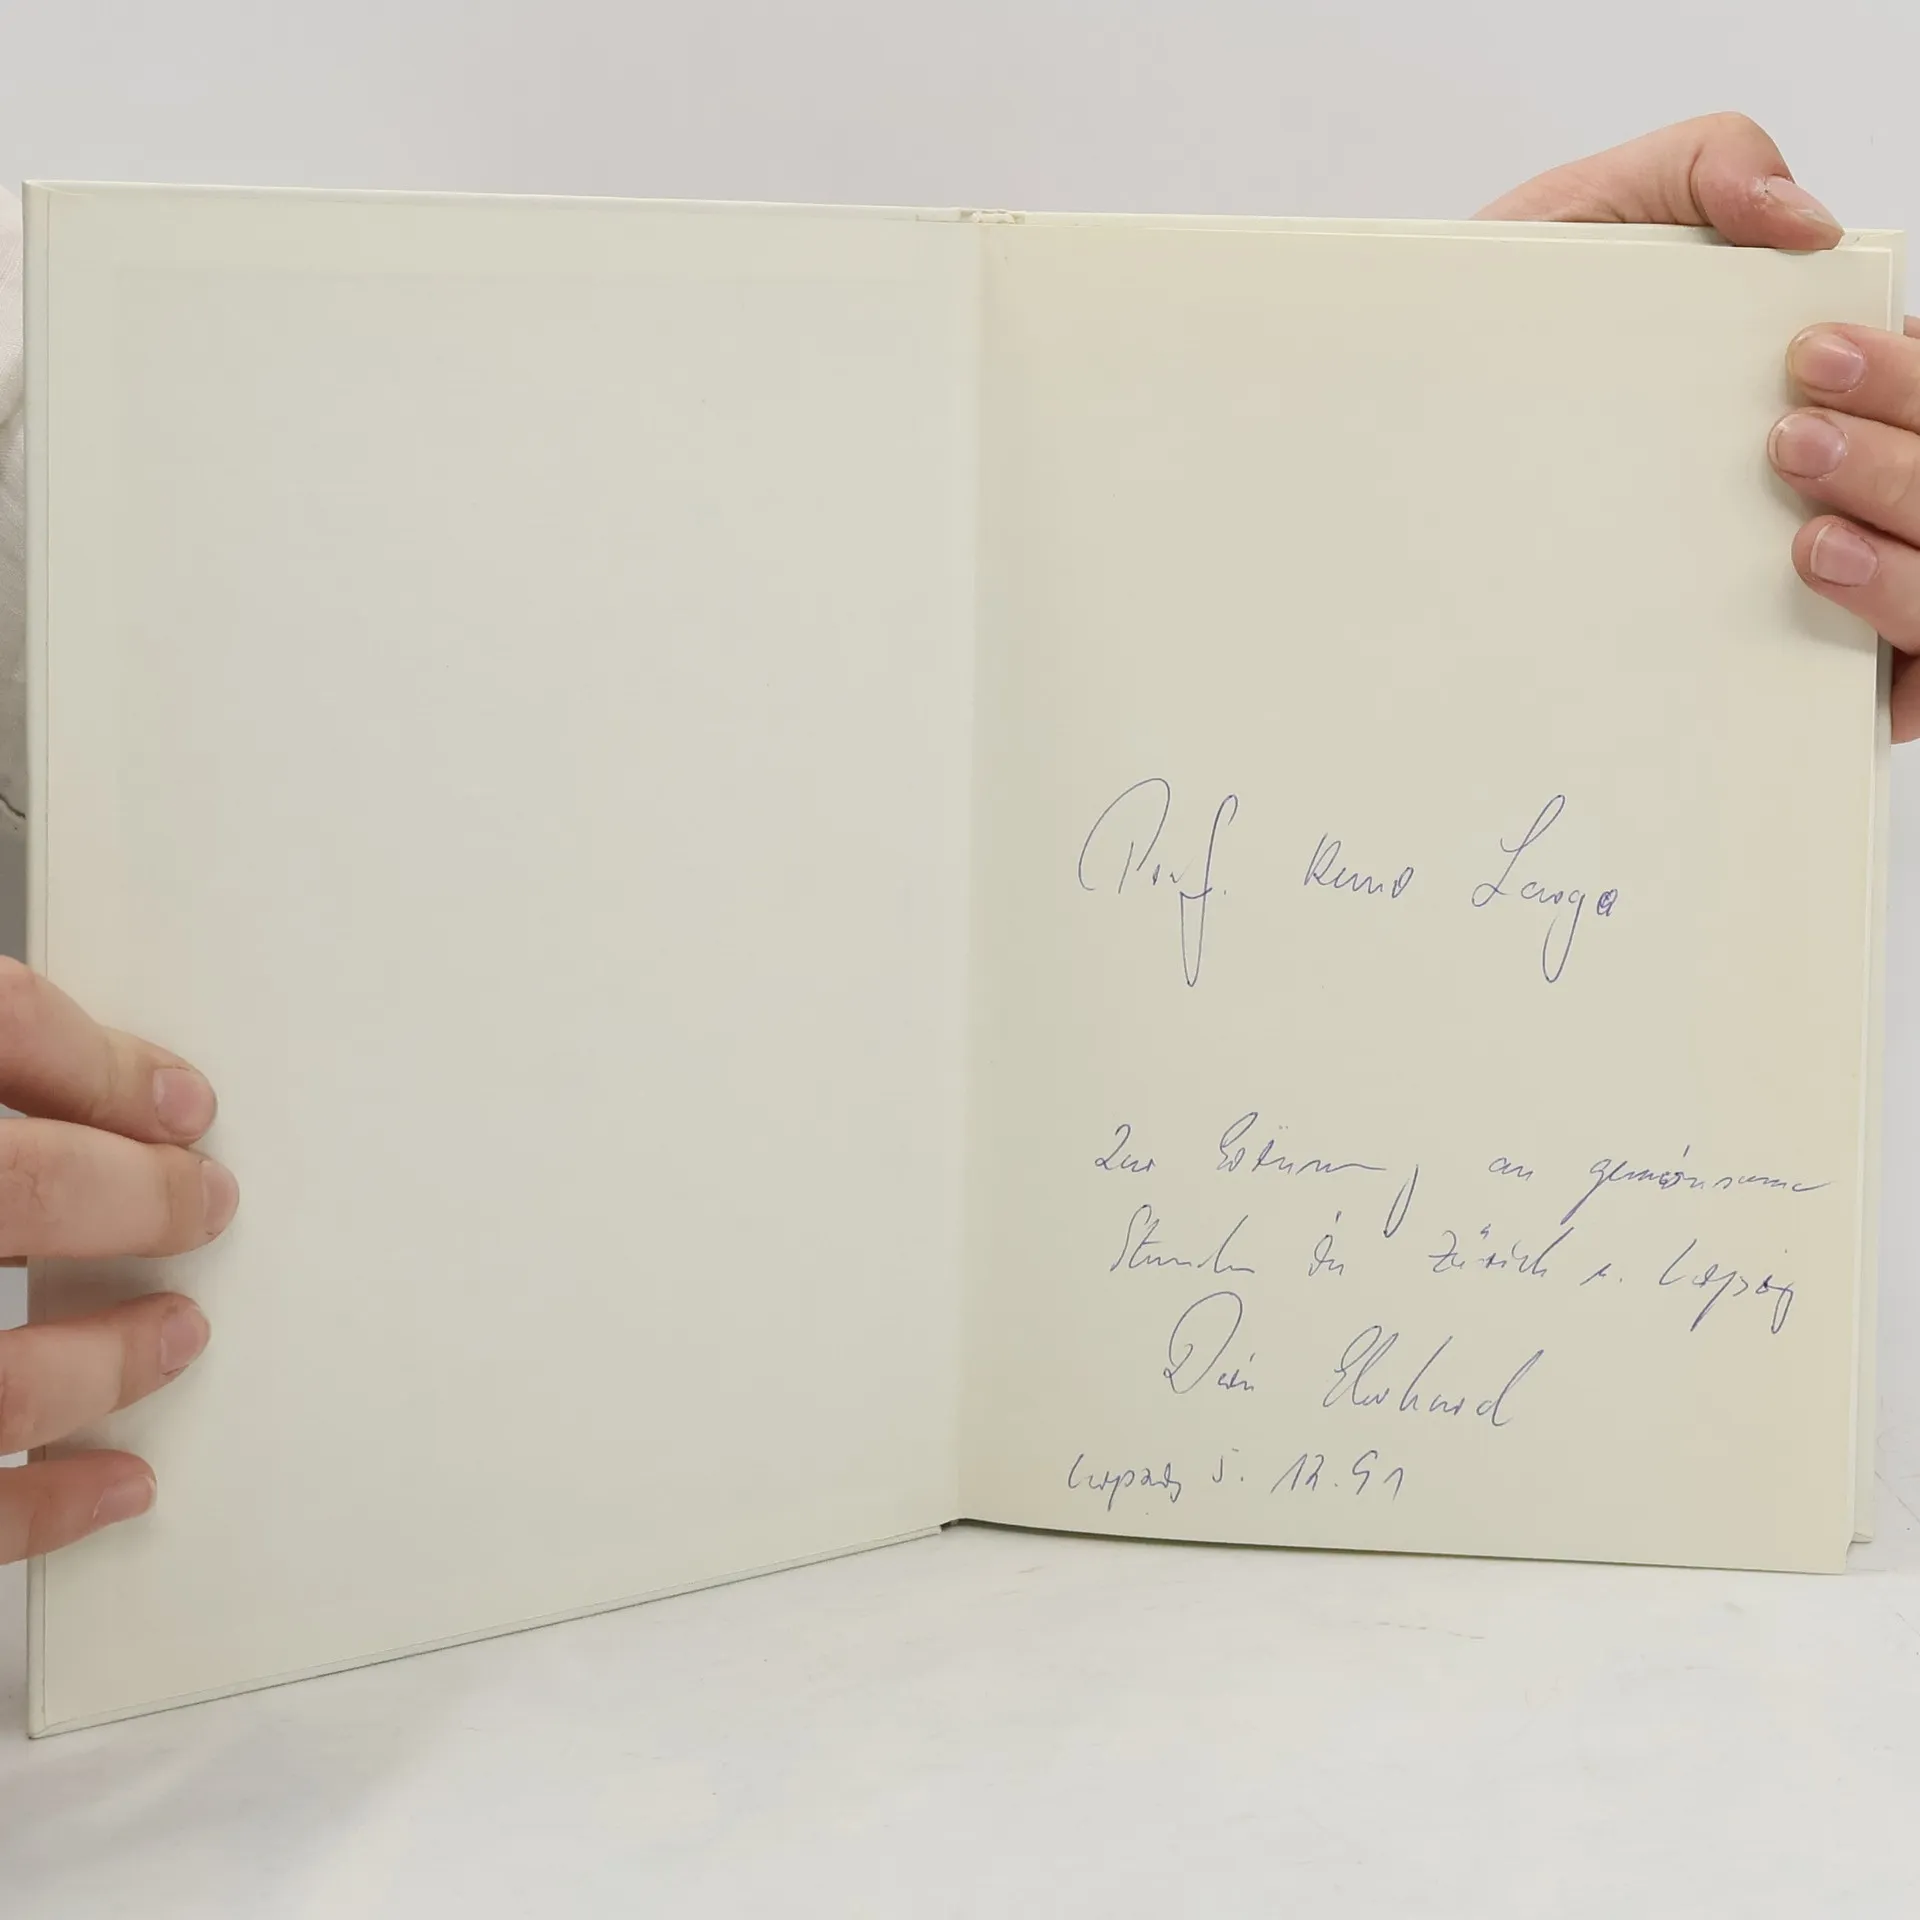 Prof. Lange
Zur Erinnerung an gemeinsame
Stunden in Zürich u. Leipzig
Dein Eberhard
Leipzig 5. 12. 91